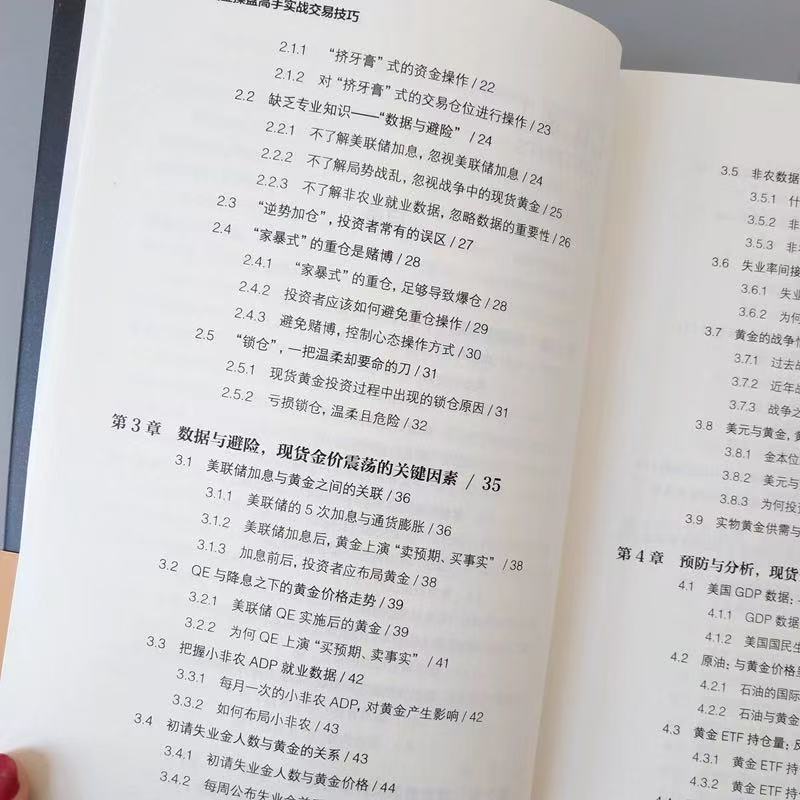 操盘高手实战交易技巧
2.1.1 “挤牙膏”式的资金操作 / 22
2.1.2 对“挤牙膏”式的交易仓位进行操作 / 23
2.2 缺乏专业知识——“数据与避险” / 24
2.2.1 不了解美联储加息，忽视美联储加息 / 24
2.2.2 不了解局势战乱，忽视战争中的现货黄金 / 25
2.2.3 不了解非农业就业数据，忽略数据的重要性 / 26
2.3 “逆势加仓”，投资者常有的误区 / 27
2.4 “家暴式”的重仓是赌博 / 28
2.4.1 “家暴式”的重仓，足够导致爆仓 / 28
2.4.2 投资者应该如何避免重仓操作 / 29
2.4.3 避免赌博，控制心态操作方式 / 30
2.5 “锁仓”，一把温柔却要命的刀 / 31
2.5.1 现货黄金投资过程中出现的锁仓原因 / 31
2.5.2 亏损锁仓，温柔且危险 / 32
第 3 章 数据与避险，现货金价震荡的关键因素 / 35
3.1 美联储加息与黄金之间的关联 / 36
3.1.1 美联储的 5 次加息与通货膨胀 / 36
3.1.2 美联储加息后，黄金上演“卖预期、买事实” / 38
3.1.3 加息前后，投资者应布局黄金 / 38
3.2 QE 与降息之下的黄金价格走势 / 39
3.2.1 美联储 QE 实施后的黄金 / 39
3.2.2 为何 QE 上演“买预期、卖事实” / 41
3.3 把握小非农 ADP 就业数据 / 42
3.3.1 每月一次的小非农 ADP，对黄金产生影响 / 42
3.3.2 如何布局小非农 / 43
3.4 初请失业金人数与黄金的关系 / 43
3.4.1 初请失业金人数与黄金价格 / 44
3.4.2 每周公布失业金
3.5 非农数据
3.5.1 什
3.5.2 非
3.5.3 非
3.6 失业率间接
3.6.1 失业
3.6.2 为何
3.7 黄金的战争性
3.7.1 过去战
3.7.2 近年战
3.7.3 战争之
3.8 美元与黄金，
3.8.1 金本位
3.8.2 美元与
3.8.3 为何投
3.9 实物黄金供需与
第 4 章 预防与分析，现货
4.1 美国 GDP 数据：
4.1.1 GDP 数据
4.1.2 美国国民生
4.2 原油：与黄金价格
4.2.1 石油的国际
4.2.2 石油与黄金
4.3 黄金 ETF 持仓量：
4.3.1 黄金 ETF 持
4.3.2 黄金 ETF 持仓